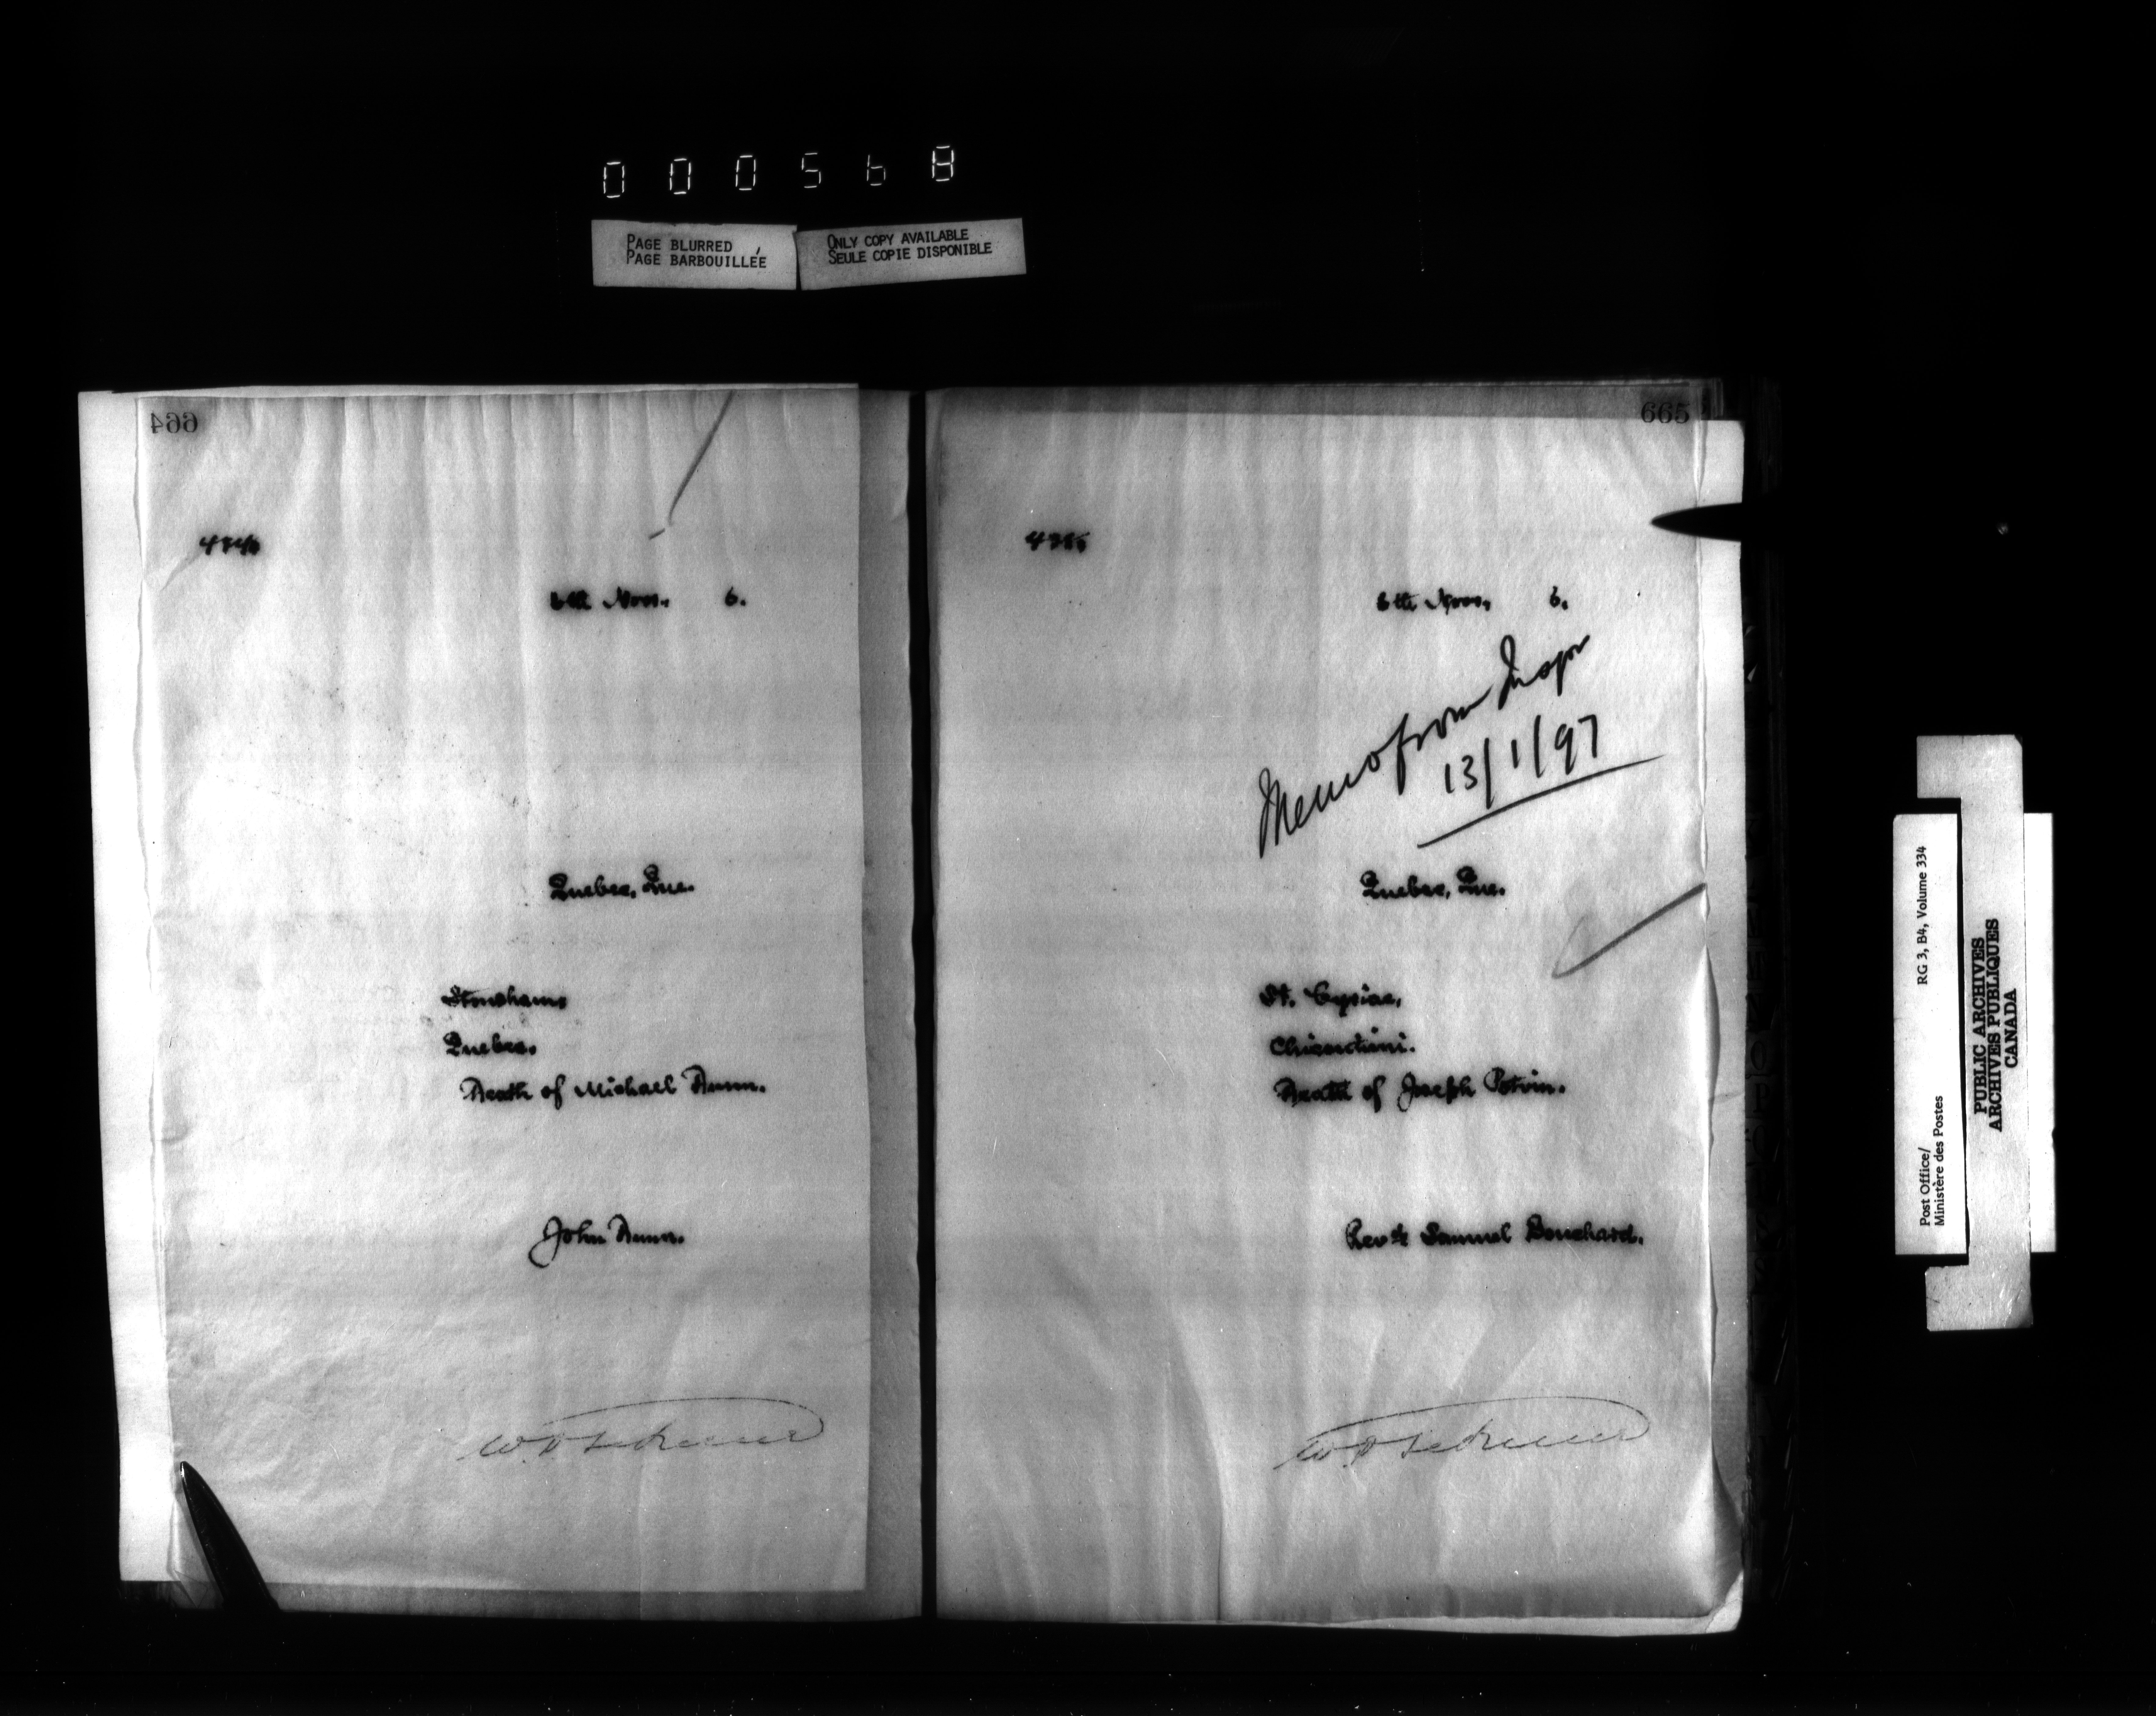 000568
PAGE BLURRED
PAGE BARBOUILLÉE
ONLY COPY AVAILABLE
SEULE COPIE DISPONIBLE
664
6th Nov. 6.
Quebec, Que.
Stoneham,
Quebec.
Death of Michael
John
665
6th Nov. 6.
Memo from Inspr
13/1/97
Quebec, Que.
St. Cyriac,
Chicoutimi.
Death of Joseph Potvin.
Revd. Samuel Bouchard.
Post Office/
Ministère des Postes
RG 3, B4, Volume 334
PUBLIC ARCHIVES
ARCHIVES PUBLIQUES
CANADA